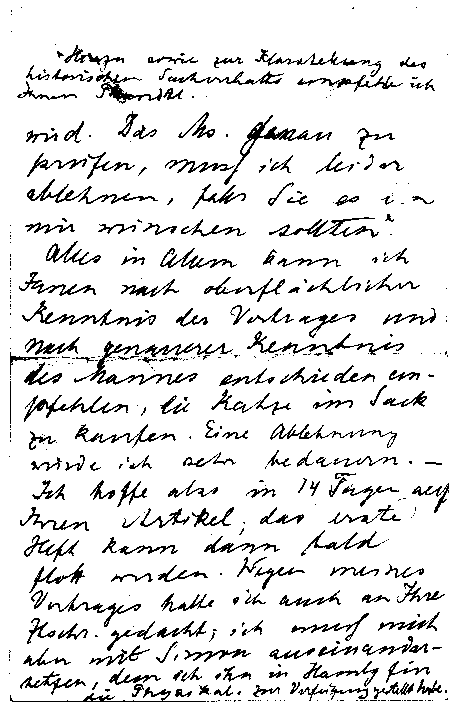 * Hierzu sowie zur Klarstellung des
historischen Sachverhalts empfehle ich
Ihnen Prandtl.
wird. Das Ms. genau zu
prüfen, muß ich leider
ablehnen, falls Sie es von
mir wünschen sollten.*
Alles in Allem kann ich
Ihnen nach oberflächlicher
Kenntnis des Vortrages und
nach genauerer Kenntnis
des Mannes entschieden em-
pfehlen, die Katze im Sack
zu kaufen. Eine Ablehnung
würde ich sehr bedauern. —
Ich hoffe also in 14 Tagen auf
Ihren Artikel; das erste
Heft kann dann bald
flott werden. Wegen meines
Vortrages hatte ich auch an Ihre
Ztschr. gedacht; ich muß mich
aber mit Simon auseinander-
setzen, dem ich ihn in Hambg für
die Physikal. zur Verfügung gestellt habe.